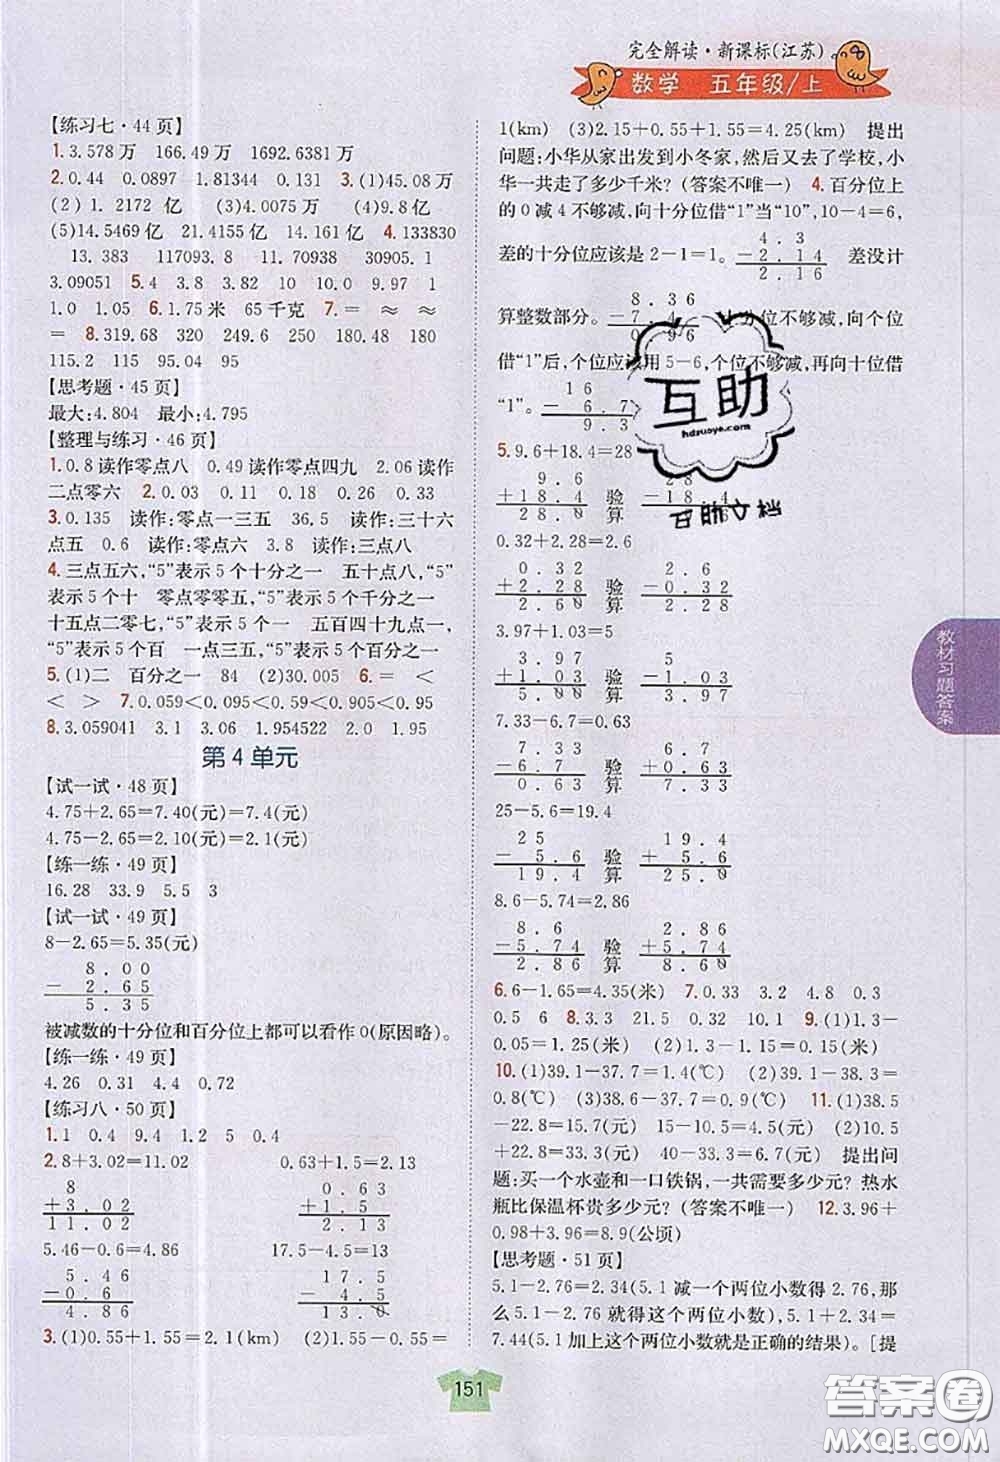 完全解读·新课标(江苏)
数学 五年级/上
【练习七·44页】
1.3.578万 166.49万 1692.6381万
2.0.44 0.0897 1.81344 0.131 3.(1)45.08万
(2)1.2172亿 (3)4.0075万 (4)9.8亿
(5)14.5469亿 21.4155亿 14.161亿 4.133830
13.383 117093.8 11.70938 30905.1
3.09051 5.4 3.8 3.82 10 10.0 9.97 1
1.0 1.05 6.1.75米 65千克 7.= ≈ ≈
= 8.319.68 320 249.6 250 180.48 180
115.2 115 95.04 95
【思考题·45页】
最大:4.804 最小:4.795
【整理与练习·46页】
1.0.8读作零点八 0.49读作零点四九 2.06读作
二点零六 2.0.03 0.11 0.16 0.26 0.33
3.0.135 读作:零点一三五 36.5 读作:三十六
点五 0.6 读作:零点六 3.8 读作:三点八
4.三点五六,“5”表示5个十分之一 五十点八,“5”
表示5个十 零点零零五,“5”表示5个千分之一
十五点二零七,“5”表示5个一 五百四十九点一,
“5”表示5个百 一点三五,“5”表示5个百分之一
5.(1)二 百分之一 84 (2)30.005 6.= <
< > 7.0.059<0.095<0.59<0.905<0.95
8.3.059041 3.1 3.06 1.954522 2.0 1.95
第4单元
【试一试·48页】
4.75+2.65=7.40(元)=7.4(元)
4.75-2.65=2.10(元)=2.1(元)
【练一练·49页】
16.28 33.9 5.5 3
【试一试·49页】
8-2.65=5.35(元)
8.00
- 2.65
5.35
被减数的十分位和百分位上都可以看作0(原因略)。
【练一练·49页】
4.26 0.31 4.4 0.72
【练习八·50页】
1.1 0.4 9.4 1.2 5 0.4
2.8+3.02=11.02 0.63+1.5=2.13
8 0.63
+3.02 +1.5
11.02 2.13
5.46-0.6=4.86 17.5-4.5=13
5.46 17.5
-0.6 -4.5
4.86 13.0
3.(1)0.55+1.55=2.1(km) (2)1.55-0.55=
1(km) (3)2.15+0.55+1.55=4.25(km) 提出
问题:小华从家出发到小冬家,然后又去了学校,小
华一共走了多少千米?(答案不唯一) 4.百分位上
的0减4不够减,向十分位借“1”当“10”,10-4=6,
4.3
差的十分位应该是2-1=1。 -2.14 差没计
2.16
8.36
算整数部分。 -7.4 十分位不够减,向个位
0.96
借“1”后,个位应该用5-6,个位不够减,再向十位借
16
“1”。 -6.7
9.3
5.9.6+18.4=28
9.6 28
+18.4 验 -18.4
28.0 算
0.32+2.28=2.6
0.32 2.6
+2.28 验 -0.32
2.60 算 2.28
3.97+1.03=5
3.97 5
+1.03 验 -1.03
5.00 算 3.97
7.33-6.7=0.63
7.33 0.63
-6.7 验 +6.7
0.63 算 7.33
25-5.6=19.4
25 19.4
-5.6 验 +5.6
19.4 算 25.0
8.6-5.74=2.86
8.6 2.86
-5.74 验 +5.74
2.86 算 8.60
6.6-1.65=4.35(米) 7.0.33 3.2 4.8 0.3
0.5 6 8.3.3 21.5 0.32 10.1 9.(1)1.3-
0.05=1.25(米) (2)1.3-1.25=0.05(米)
10.(1)39.1-37.7=1.4(℃) (2)39.1-38.3=
0.8(℃) (3)38.6-37.7=0.9(℃) 11.(1)38.5
-22.8=15.7(元) 15-10.5=4.5(元) (2)10.5
+22.8=33.3(元) 40-33.3=6.7(元) 提出问
题:买一个水壶和一口铁锅,一共需要多少元? 热水
瓶比保温杯贵多少元?(答案不唯一) 12.3.96+
0.98+3.96=8.9(公顷)
【思考题·51页】
5.1-2.76=2.34(5.1减一个两位小数得2.76,那
么5.1-2.76就得这个两位小数),5.1+2.34=
7.44(5.1加上这个两位小数就是正确的结果)。[提
教材习题答案
151
互助
hdzuoye.com
互助文档
答案圈
MXQE.COM